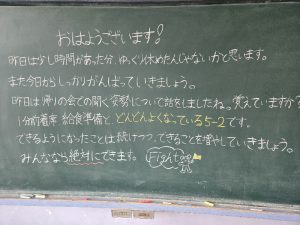 おはようございます!
昨日は少し時間があった分、ゆっくり休めたんじゃないかと思います。
また今日からしっかりがんばっていきましょう。
昨日は帰りの会での聞く姿勢について話をしましたね。覚えていますか?
1分前着席、給食準備と、どんどんよくなっている5-2です。
できるようになったことは続けつつ、できることを増やしていきましょう。
みんなら絶対にできます。 Fight